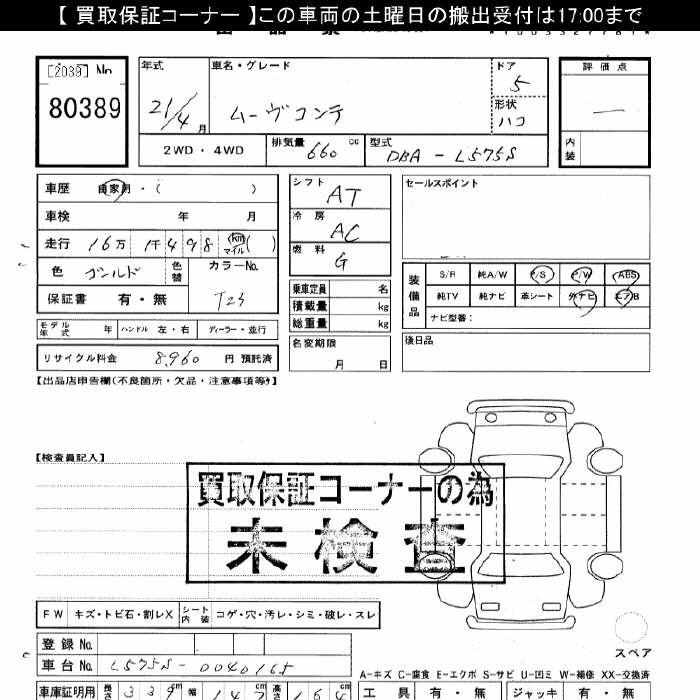 【 買取保証コーナー 】この車両の土曜日の搬出受付は17:00まで
[2039] No
80389
年式
21/4 月
車名・グレード
ムーヴコンテ
ドア
5
形状
ハコ
評価点
―
内装
2WD・4WD
排気量 660 cc
型式 DBA - L575S
車歴 自家用・( )
車検 年 月
走行 16万 1千498 (km マイル)( )
色 ゴールド 色替
カラーNo.
T23
保証書 有・無
シフト AT
冷房 AC
燃料 G
セールスポイント
装備品
S/R 純A/W P/S P/W ABS
純TV 純ナビ 革シート 外ナビ エアB
ナビ型番:
乗車定員 名
積載量 kg
総重量 kg
モデル年式 年 ハンドル 左・右 ディーラー・並行
名変期限 月 日
後日品
リサイクル料金 8,960 円 預託済
【出品店申告欄(不良箇所・欠品・注意事項等)】
【検査員記入】
買取保証コーナーの為
未検査
FW キズ・トビ石・割レX シート内張 コゲ・穴・汚レ・シミ・破レ・スレ
登録No.
車台No. L575S-0040165
スペア
A-キズ C-腐食 E-エクボ S-サビ U-凹ミ W-補修 XX-交換済
車庫証明用 長さ 339 cm 幅 147 高さ 164
工具 有・無 ジャッキ 有・無